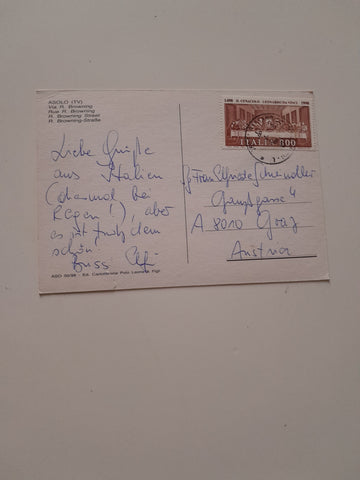 ASOLO (TV)
Via R. Browning
Rue R. Browning
R. Browning Street
R. Browning-Straße
1498 IL CENACOLO LEONARDO DA VINCI 1998
ITALIA 800
Liebe Grüße
aus Italien
(diesmal bei
Regen!), aber
es ist trotzdem
schön!
Bussi
Frau
Gampgasse 4
A 8010 Graz
Austria
ASO 50/98 - Ed. Cartoleria